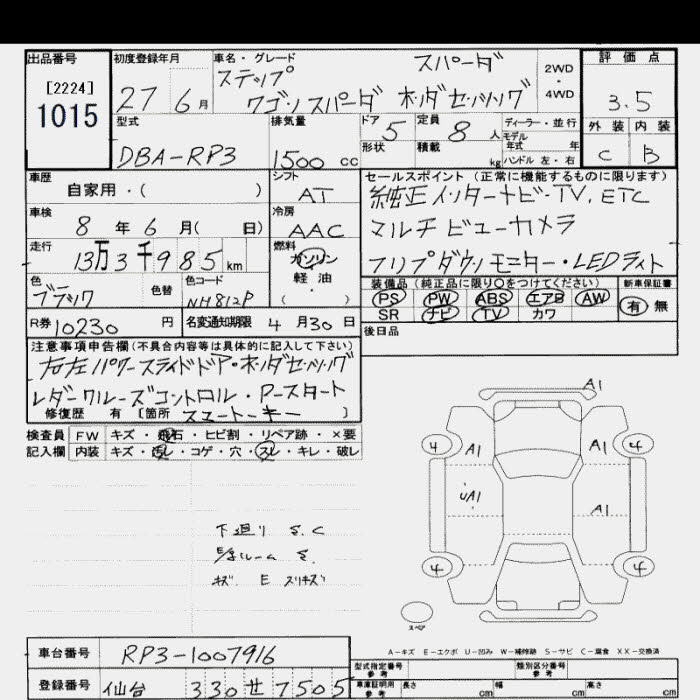 出品番号 初度登録年月 車名・グレード 評価点
[2224] 27 6月 ステップ スパーダ 2WD
1015 ワゴン スパーダ ホンダセンシング 4WD 3.5
型式 排気量 ドア 5 定員 8人 ディーラー・並行 外装 内装
DBA-RP3 1500 cc 形状 積載 kg モデル年式 年 ハンドル 左・右 C B
車歴 シフト セールスポイント (正常に機能するものに限ります)
自家用・( ) AT 純正インターナビ・TV, ETC
車検 冷房 マルチビューカメラ
8年6月( 日) AAC フリップダウンモニター・LEDライト
走行 燃料
13万3千985km ガソリン
色 色替 色コード 軽油 装備品 (純正品に限り○をつけてください) 新車保証書
ブラック NH812P ・ ( ) PS PW ABS エアB AW 有 無
SR ナビ TV カワ
R券 10230円 名変通知期限 4月30日 後日品
注意事項申告欄(不具合内容等は具体的に記入して下さい)
右左パワースライドドア・ホンダセンシング
レダークルーズコントロール・Pースタート
修復歴 有 [箇所 スマートーキー ]
検査員 FW キズ・飛石・ヒビ割・リペア跡・×要
記入欄 内装 キズ・汚レ・コゲ・穴・スレ・キレ・破レ
A1
4 A1 A1 4
UA1 A1
下廻り S.C
4 4
キズ E スリキズ
スペア
A-キズ E-エクボ U-凹み W-補修跡 S-サビ C-腐食 XX-交換済
車台番号 RP3-1007916
型式指定番号 参考 類別区分番号 参考
登録番号 仙台 330 せ 7505
車庫証明用 参考 長さ cm 幅 cm 高さ cm